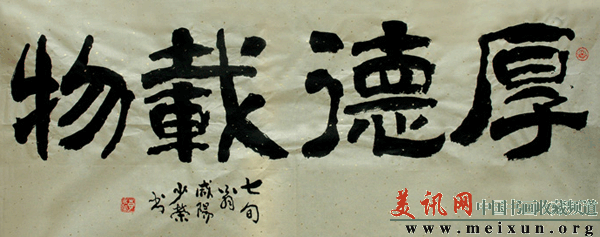 厚德載物
七旬
翁
咸陽
少榮
书
美讯网 中国书画收藏频道
www.meixun.org